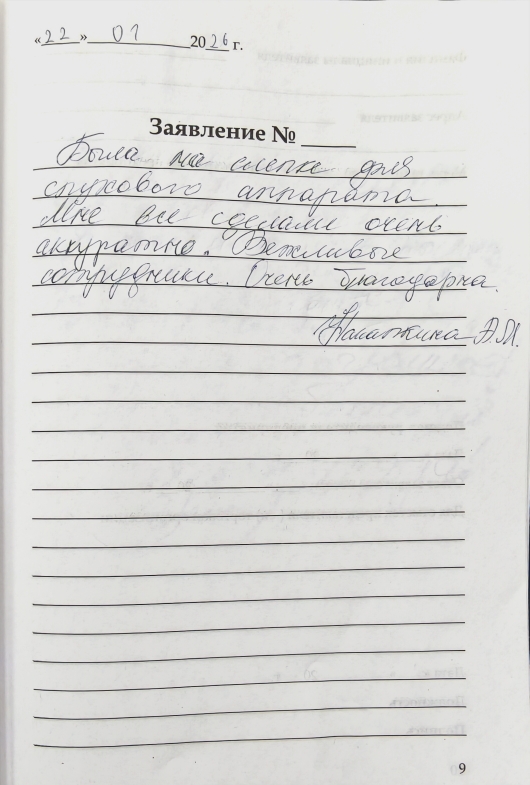 «22» 01 2026 г.
Заявление №
Была на слепке для
слухового аппарата.
Мне все сделали очень
аккуратно. Вежливые
сотрудники. Очень благодарна.
А.М.
9